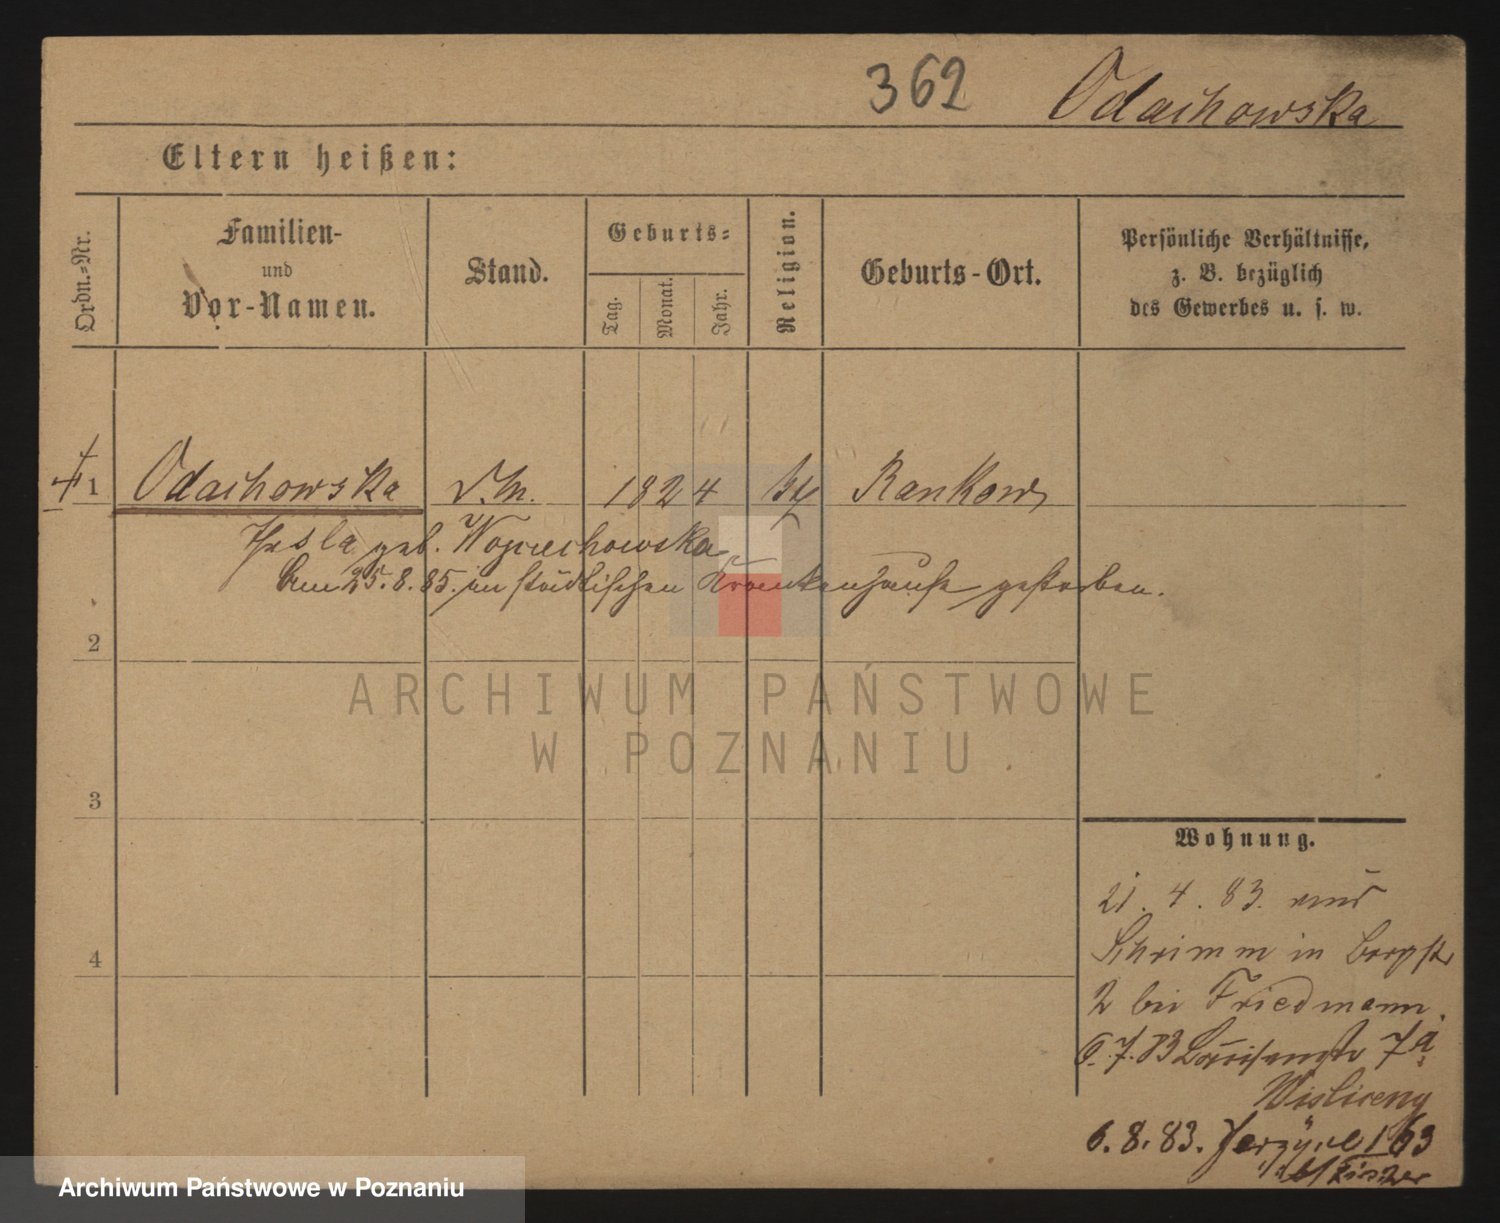 362 Odachowska
Eltern heißen:
Ordn.-Nr.
Familien-
und
Vor-Namen.
Stand.
Geburts-
Tag.
Monat.
Jahr.
Religion.
Geburts-Ort.
Persönliche Verhältnisse,
z. B. bezüglich
des Gewerbes u. s. w.
1 Odachowska 1824 Rankow
geb. Woyciechowska
am 25.8.85. im städtischen Krankenhause gestorben.
2
ARCHIWUM PAŃSTWOWE
W POZNANIU
3
Wohnung.
21. 4. 83. aus
Schrimm in
2 bei Friedmann.
6.7.83 Louisenstr 7a
Wisliceny
6.8.83. 163
b/ Fischer
4
Archiwum Państwowe w Poznaniu